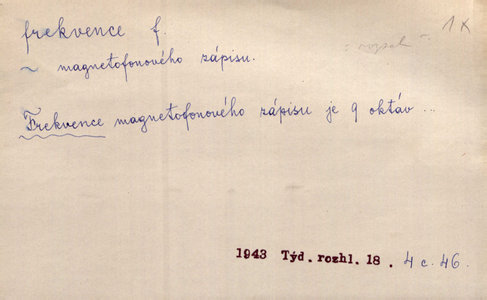 frekvence f.
1K
: rozsah :
~ magnetofonového zápisu.
Frekvence magnetofonového zápisu je 9 oktáv ...
1943 Týd. rozhl. 18. 4 c. 46.